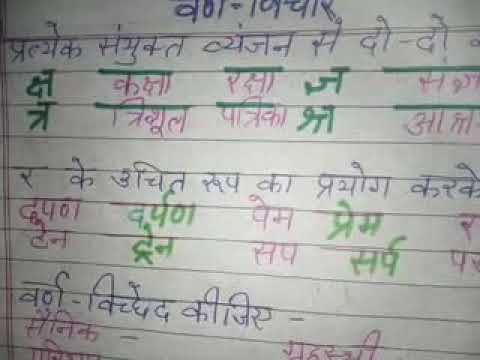 वर्ण-विचार
प्रत्येक संयुक्त व्यंजन से दो-दो
क्ष कक्षा रक्षा ज्ञ
त्र त्रिशूल पत्रिका श्र
र के उचित रूप का प्रयोग करके
दपण दर्पण पेम प्रेम
टेन ट्रेन सप सर्प
वर्ण-विच्छेद कीजिए -
सैनिक -